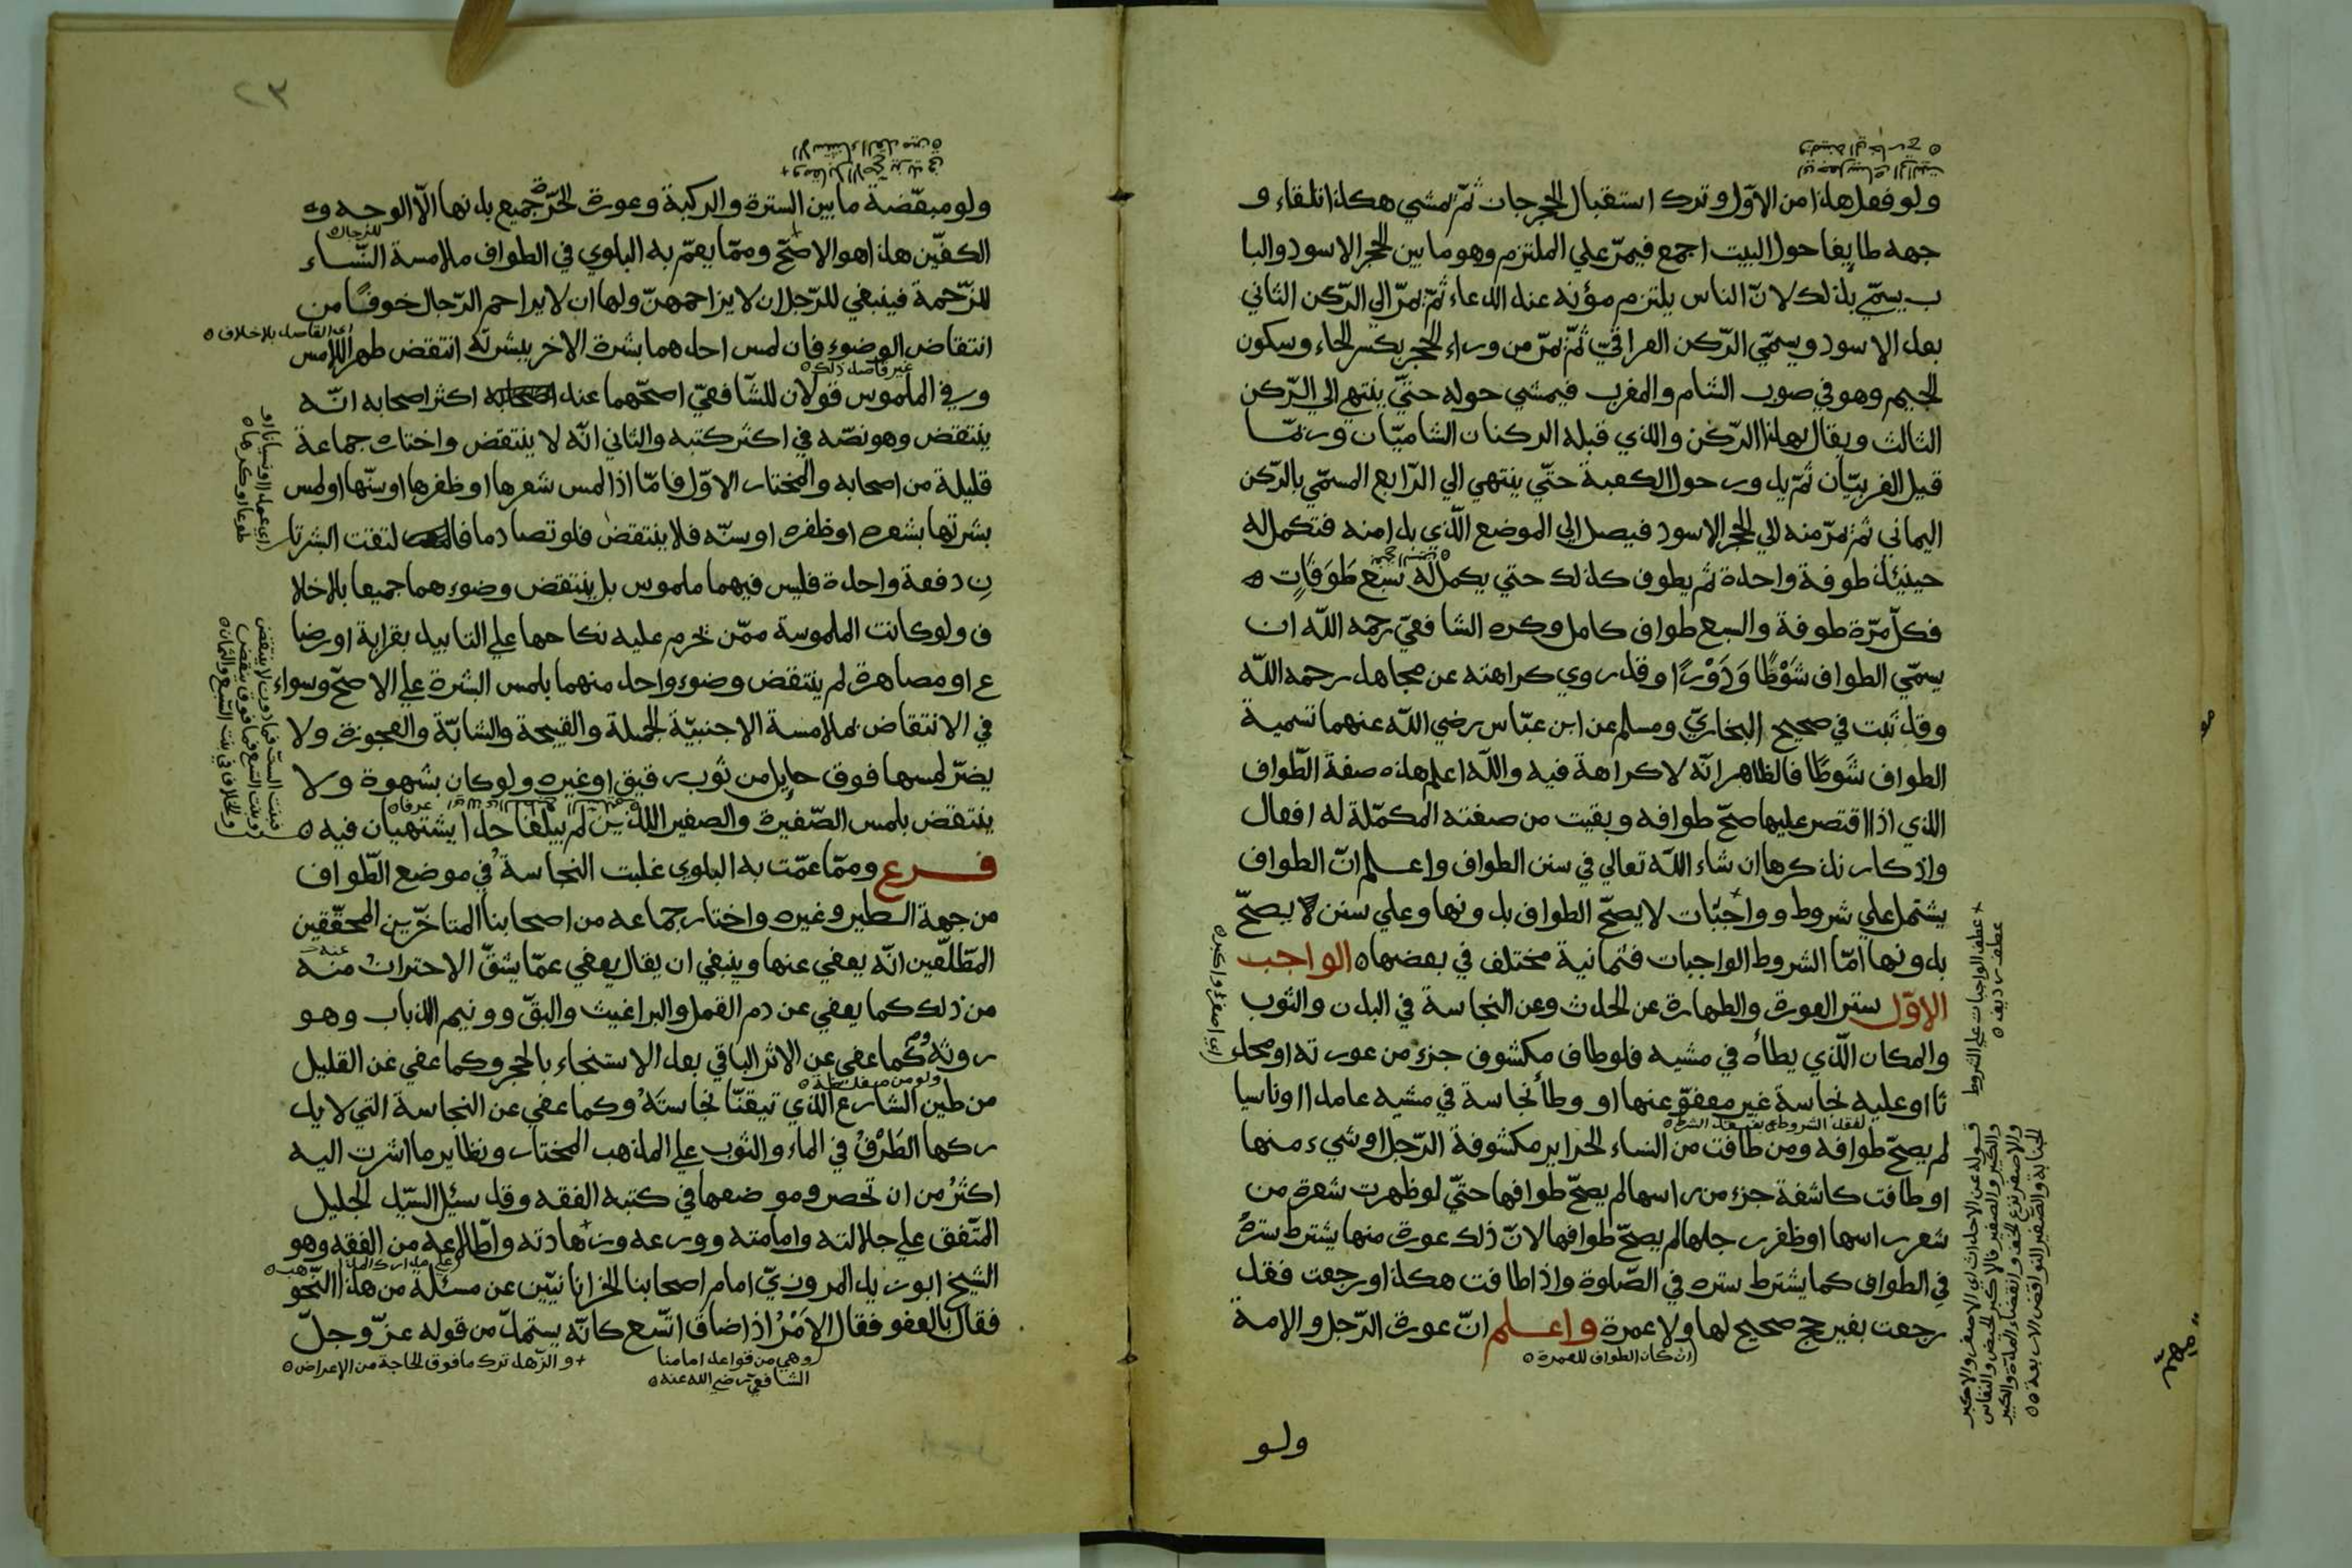 ولو فعل هذا من الاوّل وترك استقبال الحجر جاز ثمّ يمشي هكذا تلقاء و
جهه طايفا حول البيت اجمع فيمرّ علي الملتزم وهو ما بين الحجر الاسود والبا
ب يسمّي بذلك لانّ الناس يلتزمونه عند الدعاء ثمّ يمرّ الي الرّكن الثاني
بعد الاسود ويسمّي الرّكن العراقيّ ثمّ يمرّ من وراء الحجر بكسر الحاء وسكون
الجيم وهو في صوب الشام والمغرب فيمشي حوله حتّي ينتهي الي الرّكن
الثالث ويقال لهذا الرّكن والذي قبله الركنان الشاميّان وربّما
قيل الغربيّان ثمّ يدور حول الكعبة حتّي ينتهي الي الرّابع المسمّي بالرّكن
اليماني ثمّ يمرّ منه الي الحجر الاسود فيصل الي الموضع الّذي بدا منه فتكمل له
حينئذ طوفة واحدة ثم يطوف كذلك حتي يكمل له سَبْع طَوَفَاتٍ
فكلّ مرّة طوفة والسبع طواف كامل وكره الشافعيّ رحمه اللّه ان
يسمّي الطواف شَوْطًا وَدَوْرًا وقد روي كراهته عن مجاهد رحمه اللّه
وقد ثبت في صحيح البخاريّ ومسلم عن ابن عبّاس رضي اللّه عنهما تسمية
الطواف شَوطًا فالظاهر انّه لا كراهة فيه واللّه اعلم هذه صفة الطّواف
الذي اذا اقتصر عليها صحّ طوافه وبقيت من صفته المكمّلة له افعال
واذكار نذكرها ان شاء اللّه تعالي في سنن الطواف واعلم انّ الطواف
يشتمل علي شروط وواجبات لا يصحّ الطواف بدونها وعلي سنن يصحّ
بدونها امّا الشروط الواجبات فثمانية مختلف في بعضها الواجب
الاوّل ستر العورة والطهارة عن الحدث وعن النجاسة في البدن والثوب
والمكان الّذي يطأه في مشيه فلو طاف مكشوف جزء من عورته او محد
ثا او عليه نجاسة غير معفوّ عنها او وطأ نجاسة في مشيه عامدا او ناسيا
لم يصحّ طوافه ومن طافت من النساء الحراير مكشوفة الرّجل او شيء منها
او طافت كاشفة جزء من راسها لم يصحّ طوافها حتّي لو ظهرت شعرة من
شعر راسها او ظفر رجلها لم يصحّ طوافها لانّ ذلك عورة منها يشترط سترُ
في الطواف كما يشترط ستره في الصّلوة واذا طافت هكذا ورجعت فقد
رجعت بغير حج صحيح لها ولا عمرة واعلم انّ عورة الرّجل والامة
(ان كان الطواف للعمرة
ولو
+ عطف الواجبات علي الشروط
عطف رديف
(اي اصغر او اكبر
قوله عن الاحداث اي الاصغر والاكبر
٢٣
ولو مبعّضة ما بين السترة والركبة وعورة الحرّة جميع بدنها الّا الوجه و
الكفّين هذا هو الاصحّ وممّا يعمّ به البلوي في الطواف ملامسة النّساء
للزّحمة فينبغي للرّجل ان لا يزاحمهنّ ولها ان لا يزاحم الرّجال خوفًا من
انتقاض الوضوء فان لمس احدهما بشرة الاخر ببشرته انتقض طهر اللامس
وفي الملموس قولان للشّافعيّ اصحّهما عند اكثر اصحابه انّه
ينتقض وهو نصّه في اكثر كتبه والثاني انّه لا ينتقض واختاره جماعة
قليلة من اصحابه والمختار الاوّل فامّا اذا لمس شعرها او ظفرها او سنّها او لمس
بشرتها بشعره او ظفره او سنّه فلا ينتقض فلو تصادما فالتقت البشرتا
نِ دفعة واحدة فليس فيهما ملموس بل ينتقض وضوءهما جميعا بلا خلا
ف ولو كانت الملموسة ممّن تحرم عليه نكاحها علي التابيد بقرابة او رضا
ع او مصاهرة لم ينتقض وضوء واحد منهما بلمس البشرة علي الاصحّ وسواء
في الانتقاض بملامسة الاجنبيّة الجميلة والقبيحة والشابّة والعجوزة ولا
يضرّ لمسها فوق حايل من ثوب رقيق او غيره ولو كان بشهوة ولا
ينتقض بلمس الصّغيرة والصغير اللذين لم يبلغا حدا يشتهيان فيه
فرع وممّا عمّت به البلوي غلبت النجاسة في موضع الطّواف
من جهة الطير وغيره واختار جماعه من اصحابنا المتاخّرين المحقّقين
المطّلعّين انّه يعفي عنها وينبغي ان يقال يعفي عمّا يشقّ الاحتراز منه
من ذلك كما يعفي عن دم القمل والبراغيث والبقّ وونيم الذباب وهو
روثهُ وكما عفي عن الاثر الباقي بعد الاستنجاء بالحجر وكما عفي عن القليل
من طين الشارع الّذي تيقنّا نجاستَهُ وكما عفي عن النجاسة التي لا يد
ركها الطَرْفُ في الماء والثوب علي المذهب المختار ونظاير ما اشرت اليه
اكثرُ من ان تحصر وموضعها في كتبه الفقه وقد سئل السّيّد الجليل
المتّفق علي جلالته وامامته وورعه وزهادته واطّلاعه من الفقه وهو
الشيخ ابو زيد المروزيّ امام اصحابنا الخراسانيّين عن مسئلة من هذا النّحو
فقال بالعفو فقال الاَمْرُ اذا ضاق اتّسع كانّه يستمدّ من قوله عزّ وجلّ
(وهي من قواعد امامنا
الشافعيّ رضي الله عنه
+ والزّهد ترك ما فوق الحاجة من الاعراض
(اي عمدا او نسيانا او
طوعا او كرها